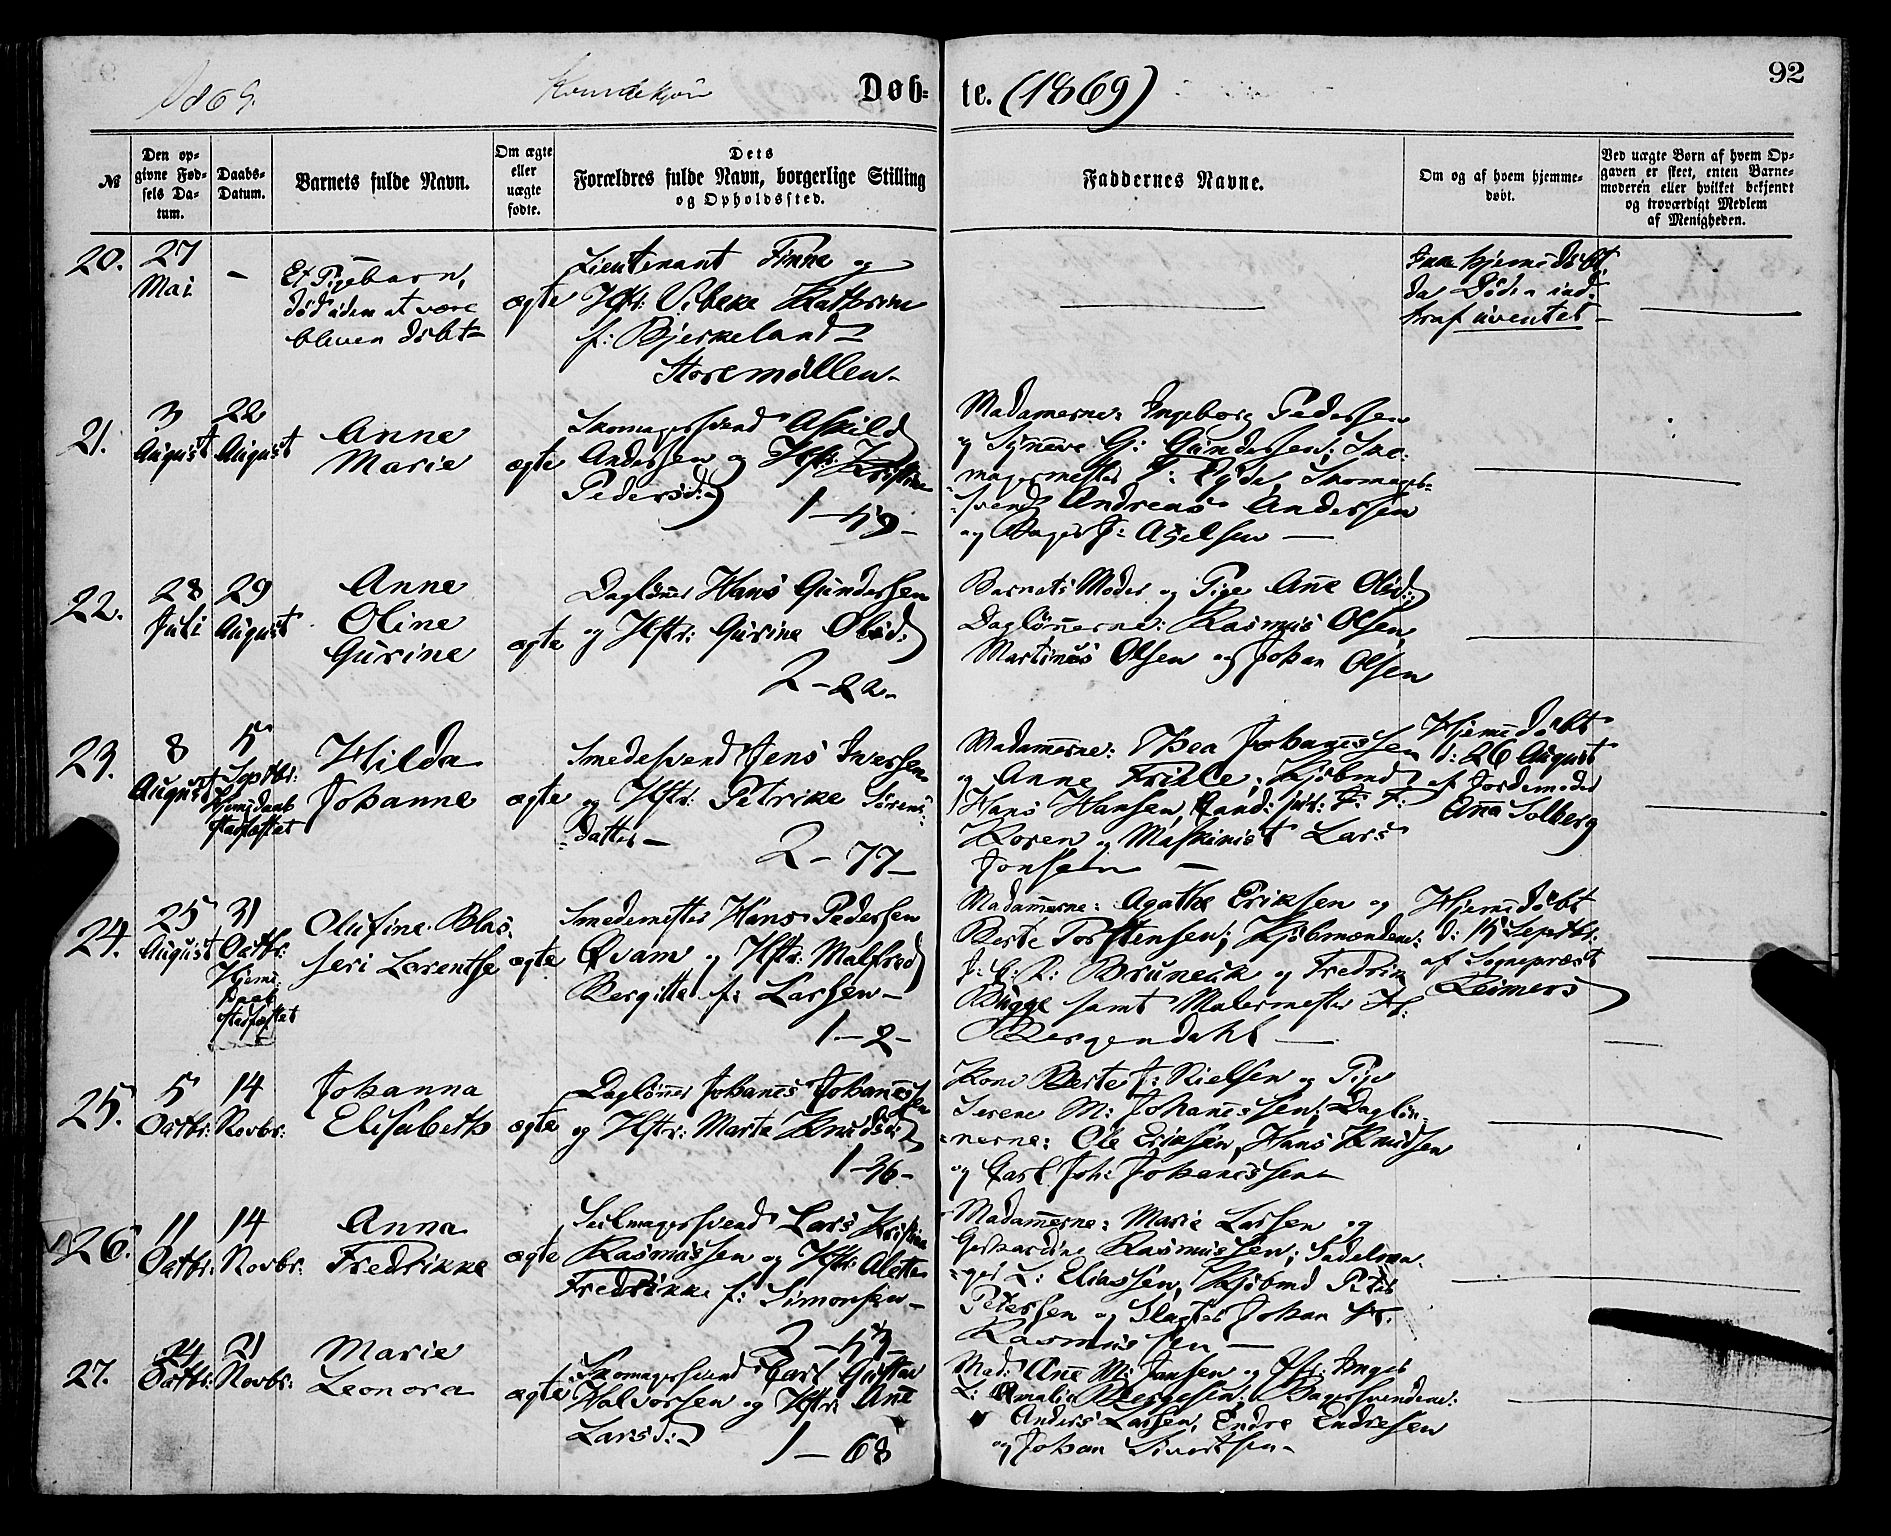 1869.
Kvindekjøn
Døb-
te. (1869)
92
№
Den op-
givne Fød-
sels Da-
tum.
Daabs-
Datum.
Barnets fulde Navn.
Om ægte
eller
uægte
fødte.
Dets
Forældres fulde Navn, borgerlige Stilling
og Opholdssted.
Faddernes Navne.
Om og af hvem hjemme-
døbt.
Ved uægte Børn af hvem Op-
gaven er skeet, enten Barne-
moderen eller hvilket bekjendt
og troværdigt Medlem
af Menigheden.
20.
27
Mai
-
Et Pigebarn,
død uden at være
bleven døbt
ægte
Lieutenant Finne og
Hstr: Vibeke Kathrine
f: Bjerkeland
Storemøllen
hjemedøbt
da Døden ind-
traf uventet
21.
3
August
22
August
Anne
Marie
ægte
Skomagersvend Askild
Andersen og Hstr: Kristine
Pedersd:
1-59-
Madamerne: Ingeborg Pedersen
og Synneve G: Gundersen; Sko-
magermester P: Eyde, Skomager-
svend Andreas Andersen
og Bager J: Axelsen
22.
28
Juli
29
August
Anne
Oline
Gurine
ægte
Daglønner Hans Gundersen
og Hstr: Gurine Olsd:
2-22-
Barnets Moder og Pige Ane Olsd:
Daglønnerne: Rasmus Olsen,
Martinus Olsen og Johan Olsen
23.
8
August
5
Septbr:
Hjemedaab
stadfæstet
Hilda
Johanne
ægte
Smedesvend Jens Iversen
og Hstr: Petrike Sørens-
datter
2-77-
Madamerne: Thea Johannessen
og Anne Frikle; Kjøbmd
Hans Hansen, Cand: jur: F: F:
Koren og Maskinist Lars
Jonsen
Hjemedøbt
d: 26 August
af Jordemoder
Ana Solberg
24.
25
August
31
Octbr:
Hjeme-
daab
stadfæstet
Olufine Blas-
seri Lorentse
ægte
Smedemester Hans Pedersen
Qvam og Hstr: Malfred
Bergitte f: Larsen
1-2-
Madamerne: Agathe Eriksen og
Berte Torstensen; Kjøbmændene:
Bruneck og Fredrik
Bügge samt Malermester H:
Bergendahl
Hjemedøbt
d: 15 Septbr:
af Sognepræst
Reimers
25.
5
Octbr:
14
Novbr:
Johanna
Elisabeth
ægte
Daglønner Johanes Johanesen
og Hstr: Marta Knudsd:
1-36-
Kone Berte J: Nielsen og Pige
Serene M: Johanessen; Dagløn-
nerne: Ole Eriksen, Hans Knudsen
og Carl Joh: Johanessen
26.
11
Octbr:
14
Novbr:
Anna
Fredrikke
ægte
Seilmagersvend Lars Kristian
Rasmussen og Hstr: Alette
Fredrikke f: Simonsen
2-53
Madamerne: Marie Larsen og
Gerhardine Rasmussen; Sadelma-
ger L: Eliassen, Kjøbmd Peter
Petersen og Slagter Johan Fr.
Rasmussen
27.
24
Octbr:
21
Novbr:
Marie
Leonora
ægte
Skomagersvend Carl Gustav
Halvorsen og Hstr: Ane
Larsd:
1-68
Mad: Ane M: Jansen og Hstr: Inger
L: Amalie Børgesen; Bagersvendene:
Anders Larsen, Endre Endresen
og Johan Sivertsen